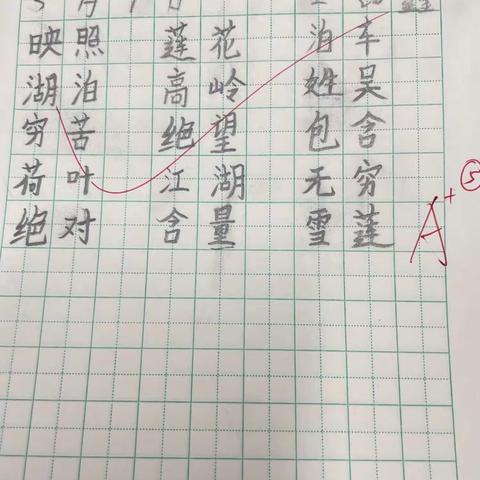 映照 莲花 泊车
湖泊 高岭 姓吴
穷苦 绝望 包含
荷叶 江湖 无穷
绝对 含量 雪莲
A+ ⑤